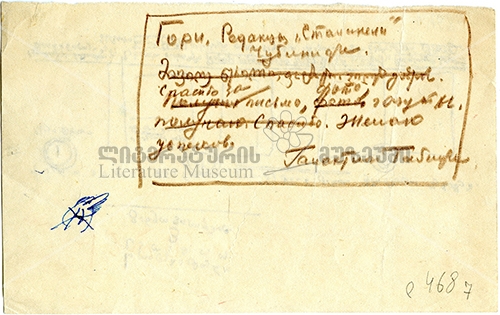 Гори, Редакция „Сталинели"
Чубинидзе.
Спасибо за фото
Получил письмо, фото, газуты.
получаю. Спасибо. Желаю
успехов,
Галактион Табидзе.
ლიტერატურის მუზეუმი
Literature Museum
4687